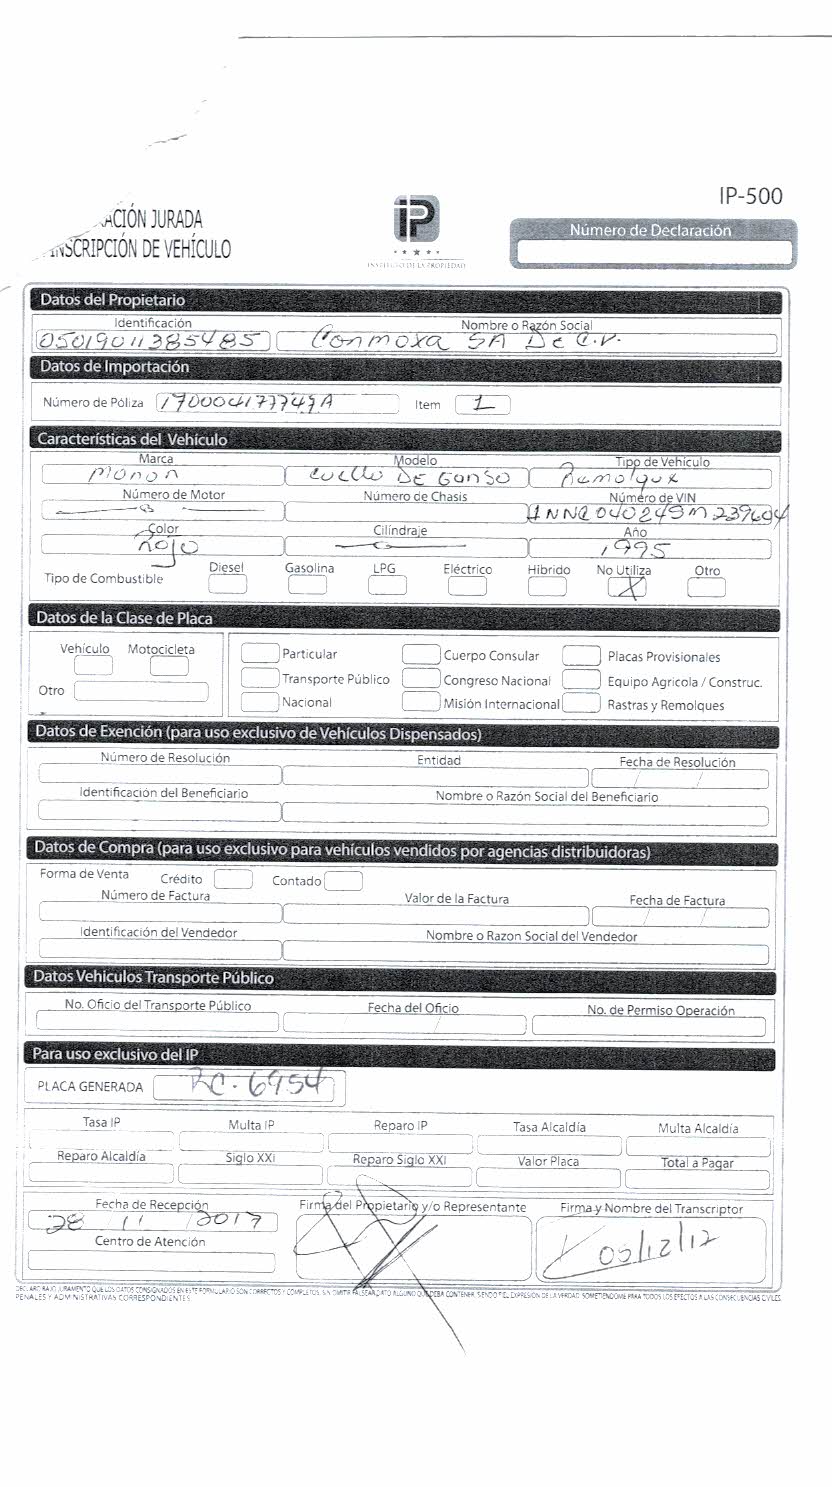 IP-500
ACIÓN JURADA
INSCRIPCIÓN DE VEHÍCULO
iP
INSTITUTO DE LA PROPIEDAD
Número de Declaración
Datos del Propietario
Identificación Nombre o Razón Social
05019011385485 Conmoxa SA De C.V.
Datos de Importación
Número de Póliza Item 1
Características del Vehículo
Marca Modelo Tipo de Vehículo
Monon Cuello DE Ganso Remolque
Número de Motor Número de Chasis Número de VIN
Color Cilíndraje Año
Rojo 1995
Tipo de Combustible Diesel Gasolina LPG Eléctrico Híbrido No Utiliza X Otro
Datos de la Clase de Placa
Vehículo Motocicleta
Otro
Particular Cuerpo Consular Placas Provisionales
Transporte Público Congreso Nacional Equipo Agricola / Construc.
Nacional Misión Internacional Rastras y Remolques
Datos de Exención (para uso exclusivo de Vehículos Dispensados)
Número de Resolución Entidad Fecha de Resolución
/ /
Identificación del Beneficiario Nombre o Razón Social del Beneficiario
Datos de Compra (para uso exclusivo para vehículos vendidos por agencias distribuidoras)
Forma de Venta Crédito Contado
Número de Factura Valor de la Factura Fecha de Factura
/ /
Identificación del Vendedor Nombre o Razon Social del Vendedor
Datos Vehiculos Transporte Público
No. Oficio del Transporte Público Fecha del Oficio No. de Permiso Operación
Para uso exclusivo del IP
PLACA GENERADA RC-6954
Tasa IP Multa IP Reparo IP Tasa Alcaldía Multa Alcaldía
Reparo Alcaldía Siglo XXI Reparo Siglo XXI Valor Placa Total a Pagar
Fecha de Recepción Firma del Propietario y/o Representante Firma y Nombre del Transcriptor
28 / 11 / 2017
05/12/17
Centro de Atención
DECLARO BAJO JURAMENTO QUE LOS DATOS CONSIGNADOS EN ESTE FORMULARIO SON CORRECTOS Y COMPLETOS, SIN OMITIR FALSEAR DATO ALGUNO QUE DEBA CONTENER, SIENDO FIEL EXPRESION DE LA VERDAD. SOMETIENDOME PARA TODOS LOS EFECTOS A LAS CONSECUENCIAS CIVILES,
PENALES Y ADMINISTRATIVAS CORRESPONDIENTES.